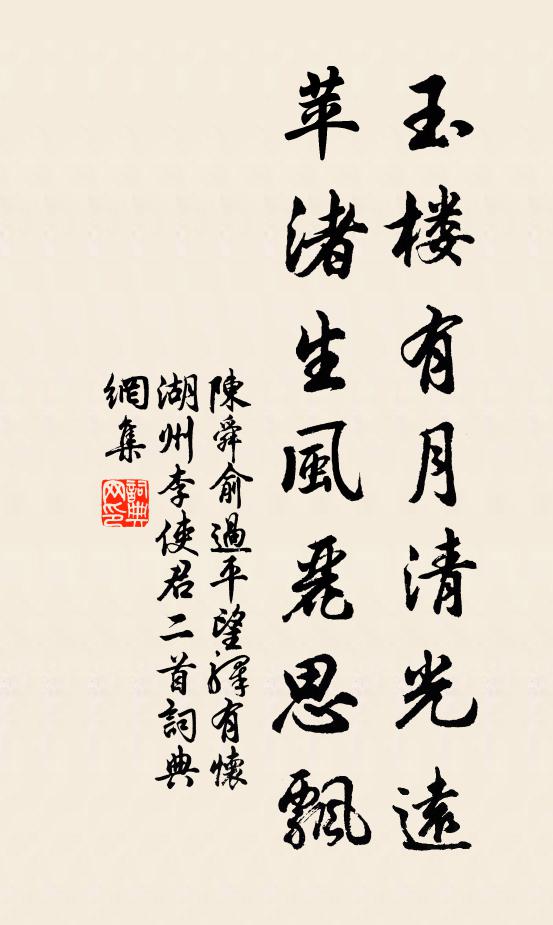 玉楼有月清光遠
苹渚生風麗思飄
陳舜俞過平望驛有懷
湖州李使君二首詞典
網集
詞典
网印